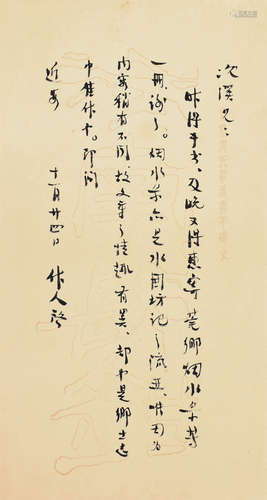 次溪兄：
昨得手书，及晚又得惠寄莞乡烟水录等
一册，谢谢。烟水录亦是水围坊记之流亚，唯因
内容稍有不同，故文章之情趣有异，却也是乡土志
中佳作也。即问
近安　十一月廿四日　作人启